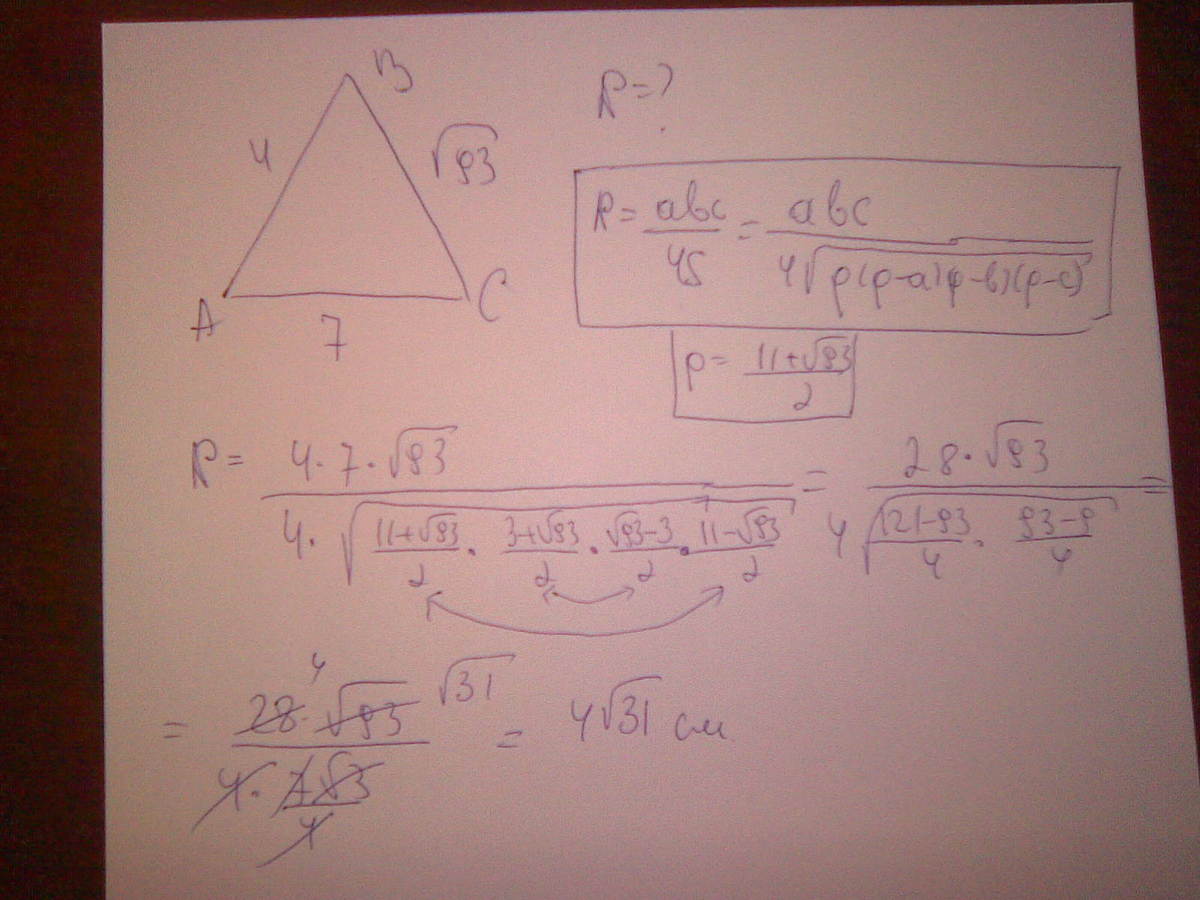 B
R=?
4
√93
R = abc/4S = abc/4√p(p-a)(p-b)(p-c)
A
7
C
p = 11+√93/2
R = 4·7·√93/4·√11+√93/2 · 3+√93/2 · √93-3/2 · 11-√93/2 = 28·√93/4√121-93/4 · 93-9/4 =
4 √31
= 28·√93/4·7√3/4 = 4√31 см